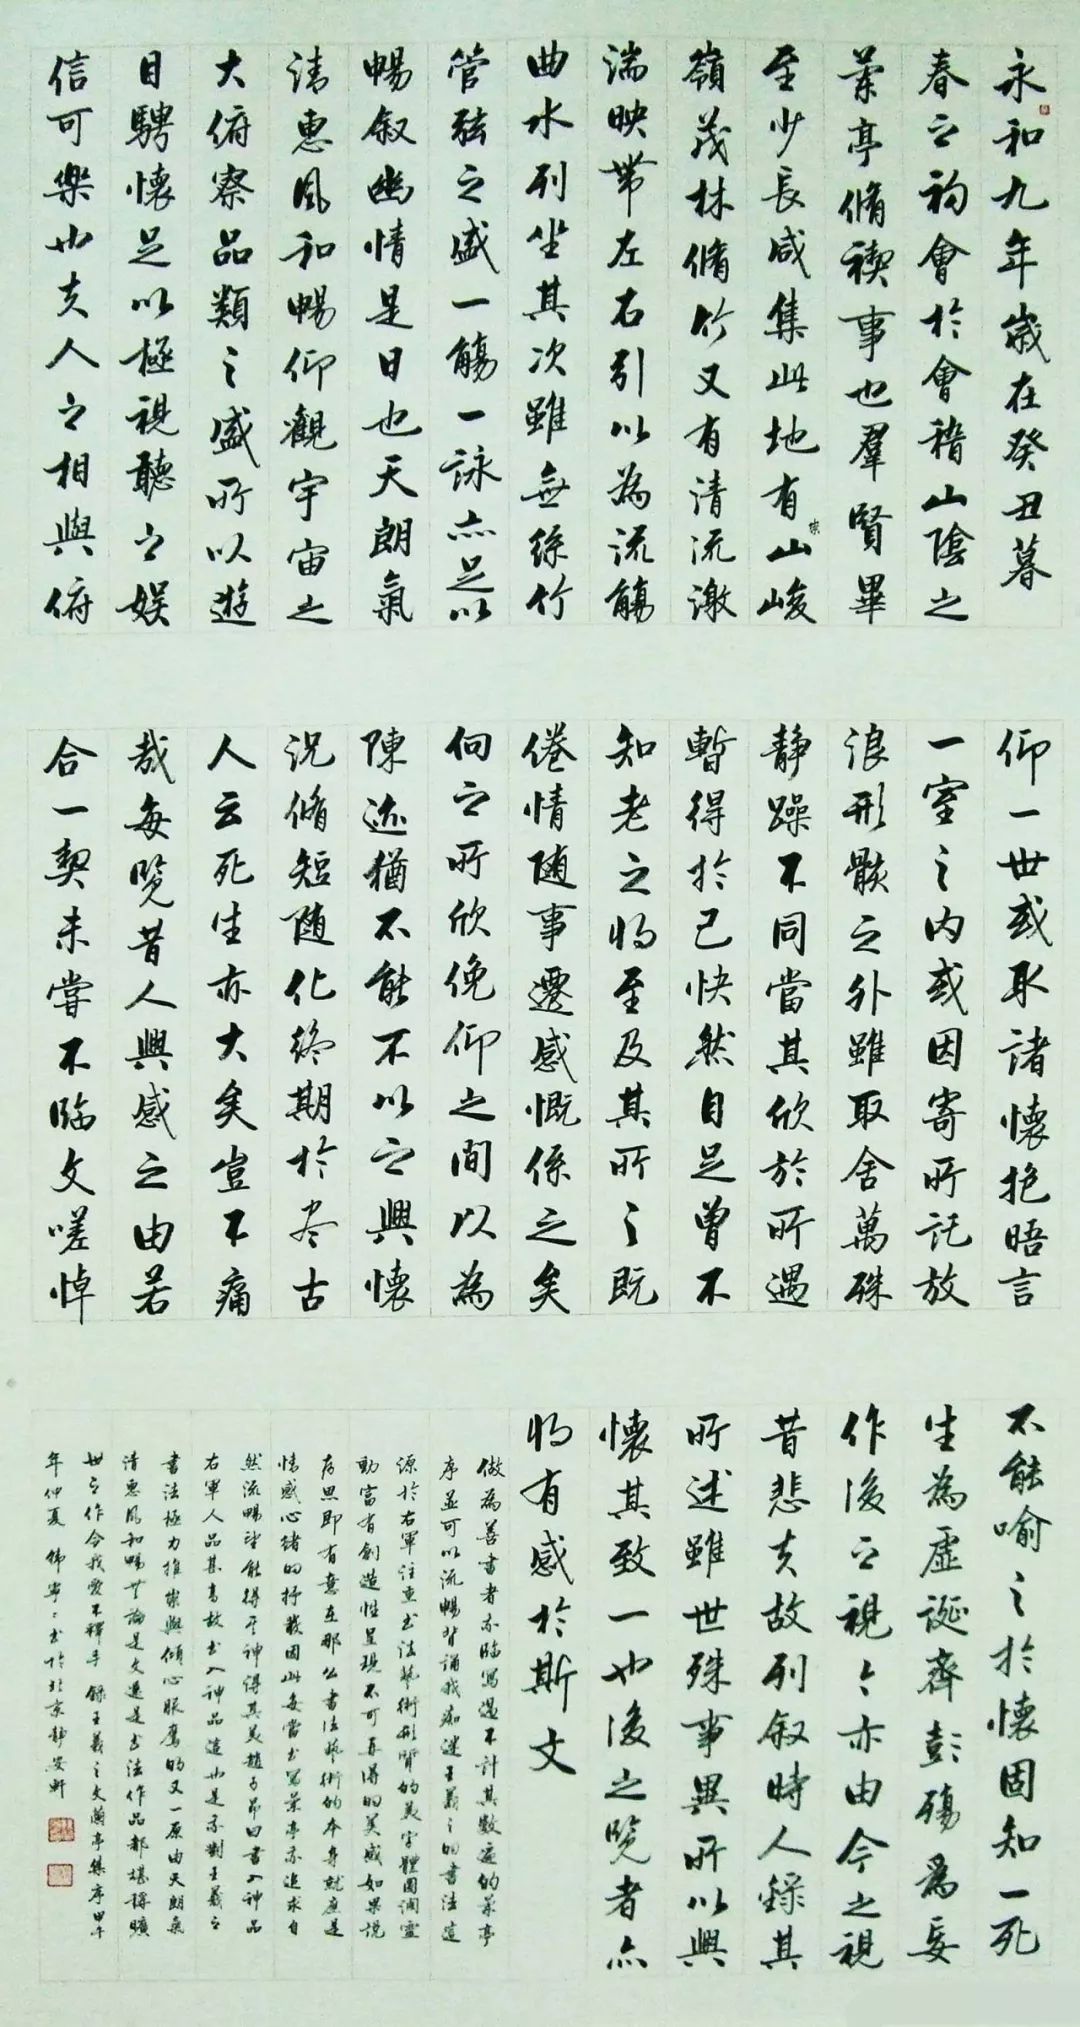 永和九年歲在癸丑暮
春之初會於會稽山陰之
蘭亭脩禊事也羣賢畢
至少長咸集此地有崇山峻
嶺茂林脩竹又有清流激
湍映帶左右引以為流觴
曲水列坐其次雖無絲竹
管弦之盛一觴一詠亦足以
暢叙幽情是日也天朗氣
清惠風和暢仰觀宇宙之
大俯察品類之盛所以遊
目騁懷足以極視聽之娛
信可樂也夫人之相與俯
仰一世或取諸懷抱晤言
一室之內或因寄所託放
浪形骸之外雖取舍萬殊
静躁不同當其欣於所遇
暫得於己快然自足曾不
知老之將至及其所之既
倦情随事遷感慨係之矣
向之所欣俛仰之間以為
陳迹猶不能不以之興懷
況脩短随化終期於盡古
人云死生亦大矣豈不痛
哉每覽昔人興感之由若
合一契未嘗不臨文嗟悼
不能喻之於懷固知一死
生為虛誕齊彭殤為妄
作後之視今亦由今之視
昔悲夫故列叙時人錄其
所述雖世殊事異所以興
懷其致一也後之覽者亦
將有感於斯文
做為善書者亦臨寫過不計其數遍的蘭亭
序並可以流暢背誦我痴迷王羲之的書法這
源於右軍注重書法藝術形質的美字體圓潤靈
動富有創造性呈現不可再得的美感如果說
思即有意在那么書法藝術的本身就應是
情感心緒的抒載因此每當書寫蘭亭亦追求自
然流暢望能得于神得其美趙子昂曰書入神品
右軍人品甚高故書入神品這也是余對王羲之
書法極力推崇與傾心服膺的又一原由天朗氣
清惠風和暢無論是文還是書法作品都堪稱曠
世之作今我愛不釋手 錄王羲之文蘭亭集序甲午
年仲夏 書於北京靜安軒